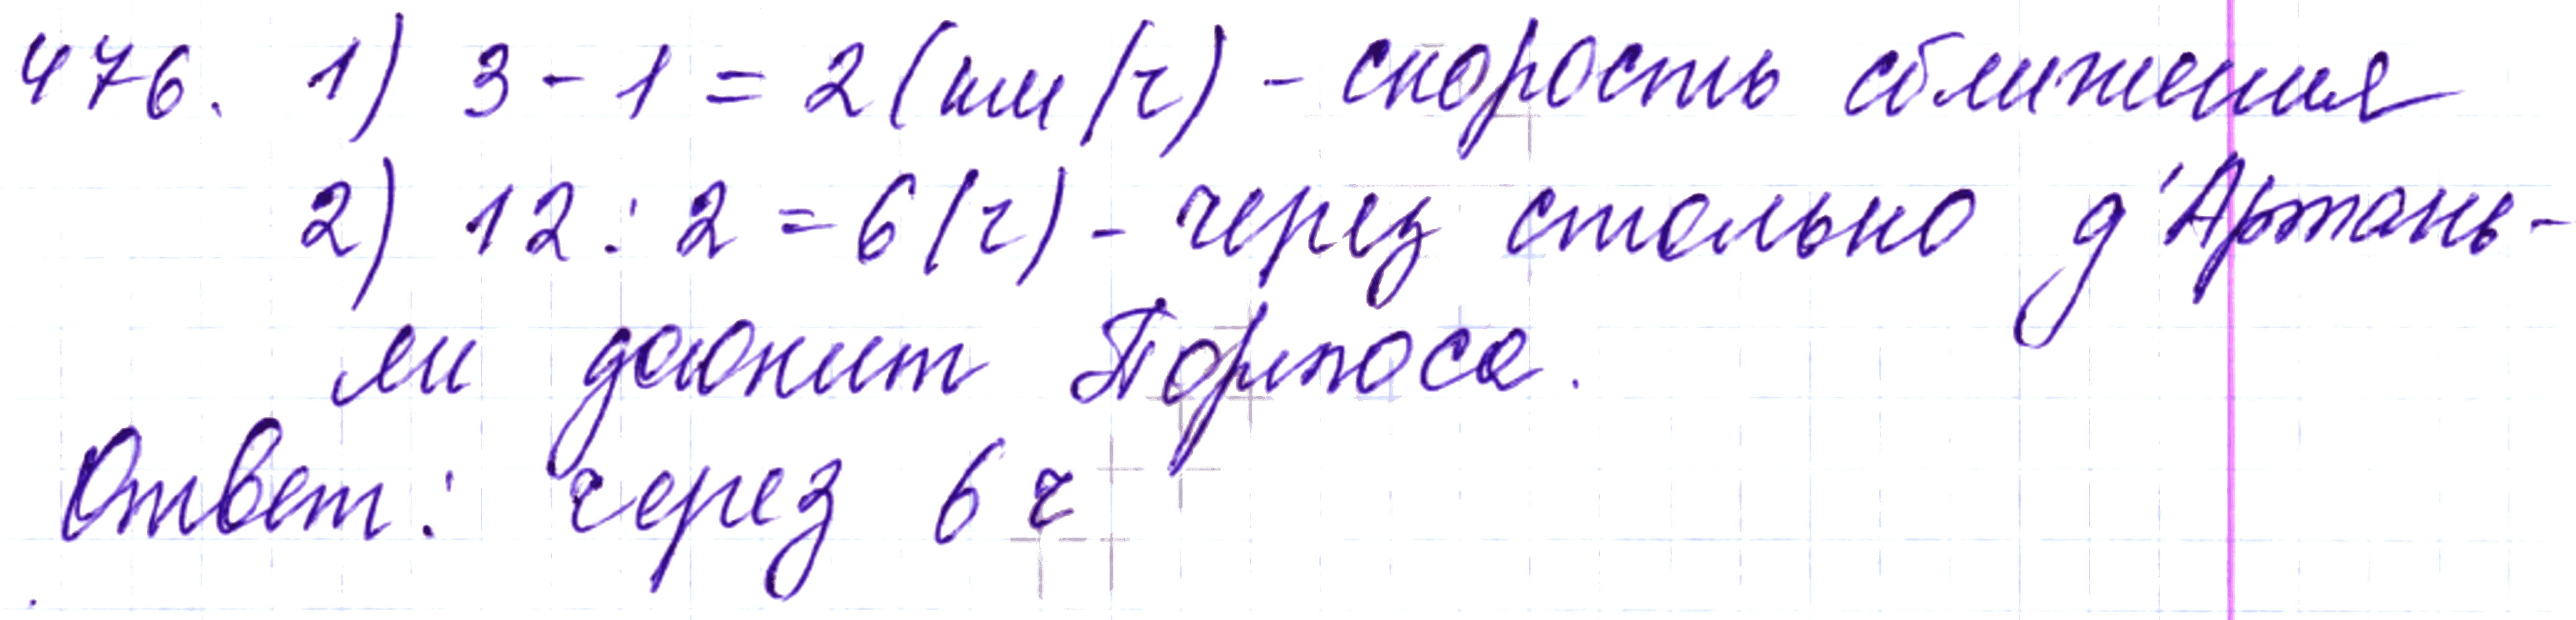 476. 1) 3 - 1 = 2 (км/ч) - скорость сближения
2) 12 : 2 = 6 (ч) - через столько д'Артань-
ян догонит Портоса.
Ответ: через 6 ч